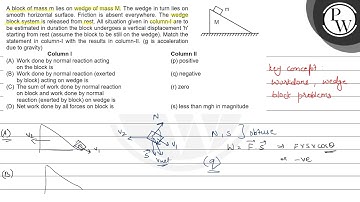 A block of mass m lies on wedge of mass M. The wedge in turn lies on smooth horizontal surface. Friction is absent everywhere. The wedge block system is released from rest. All situation given in column-I are to be estimated in duration the block undergoes a vertical displacement 'h' starting from rest (assume the block to be still on the wedge). Match the statement in column-I with the results in column-II. (g is acceleration due to gravity)
m
M
PW
Column I
Column II
(A) Work done by normal reaction acting on the block is
(p) positive
(B) Work done by normal reaction (exerted by block) acting on wedge is
(q) negative
(C) The sum of work done by normal reaction on block and work done by normal reaction (exerted by block) on wedge is
(r) zero
(D) Net work done by all forces on block is
(s) less than mgh in magnitude
key concept
workdone, wedge
block problems
(A)
V₂
V₁
N
V₂
V₁
S
Vnet
N, S } obtuse
W = F.S ⇒ FS cosθ
(q)
= -ve
(B)